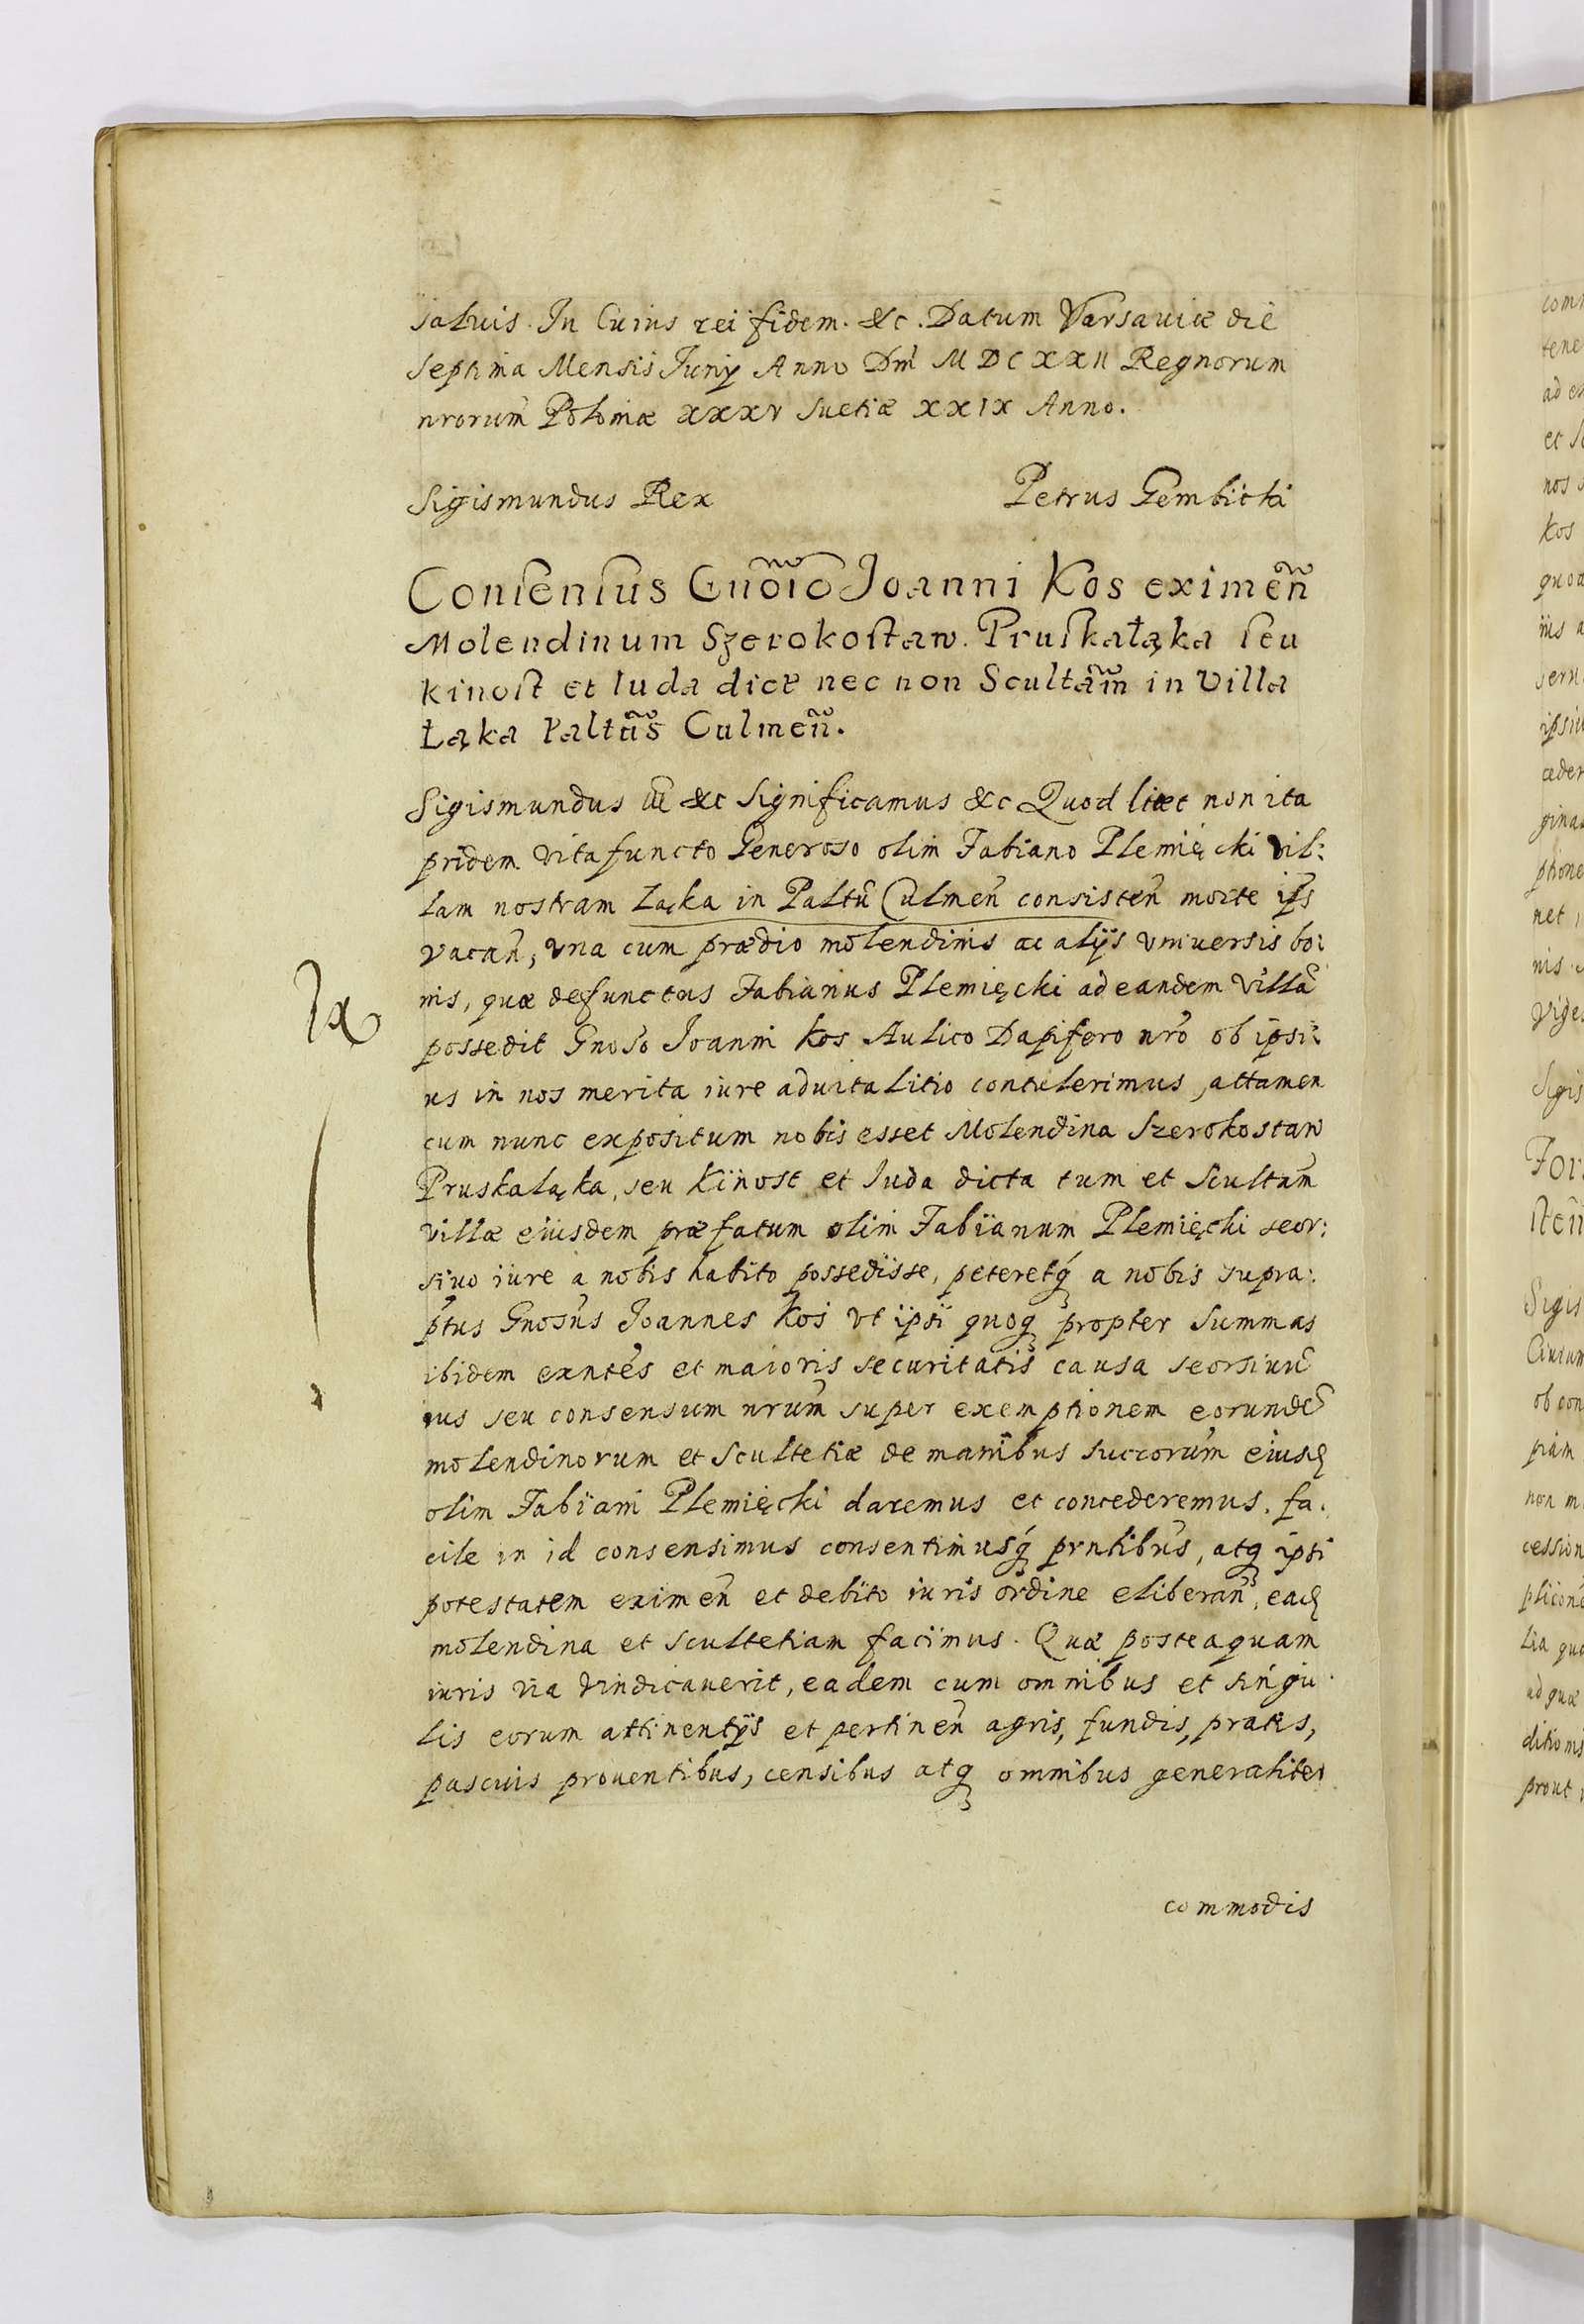 salvis. In Cuius rei fidem. &c. Datum Varsaviæ die
septima Mensis Junij Anno Dni̅ MDCXXII Regnorum
nrorum̃ Poloniæ XXXV Suetiæ XXIX Anno.
Sigismundus Rex Petrus Gembicki
Consensus Gnoso Joanni Kos eximeñ
Molendinum Szerokostaw. Pruskałąka seu
Kinost et Iuda dictæ nec non Scultãm in Villa
Łąka Paltũs Culmeñ.
Sigismundus III &c Significamus &c Quod licet non ita
pridem vita functo Generoso olim Fabiano Plemięcki vil:
lam nostram Łąka in Paltũ Culmeñ consisteñ morte ips̃
vacañ, vna cum prædio molendinis ac alijs vniversis bo:
nis, quæ defunctus Fabianus Plemięcki ad eandem villã
possedit Gnoso Joanni Kos Aulico Dapifero nrõ ob ipsi:
us in nos merita iure aduitalitio contulerimus, attamen
cum nunc expositum nobis esset Molendina Szerokostaw
Pruskaląka, seu Kinost et Iuda dicta tum et Scultam̃
villæ eiusdem præfatum olim Fabianum Plemięcki seor:
siuo iure a nobis habito possedisse, peteretq́ a nobis supra:
ptus̃ Gnosus̃ Joannes Kos vt ipsi quoq propter summas
ibidem exntẽs et maioris securitatis causa seorsiuũ
ius seu consensum nrum̃ super exemptionem eorundẽ
molendinorum et Scultetiæ de manibus succorum̃ eiusd
olim Fabiani Plemięcki daremus et concederemus. fa:
cile in id consensimus consentimusq́ prntibus̃, atq ipsi
potestatem eximeñ et debito iuris ordine eliberañ, ead
molendina et scultetiam facimus. Quæ posteaquam
iuris via vindicauerit, eadem cum omnibus et singu:
lis eorum attinentijs et pertineñ agris, fundis, pratis,
pascuis prouentibus, censibus atq omnibus generaliter
commodis